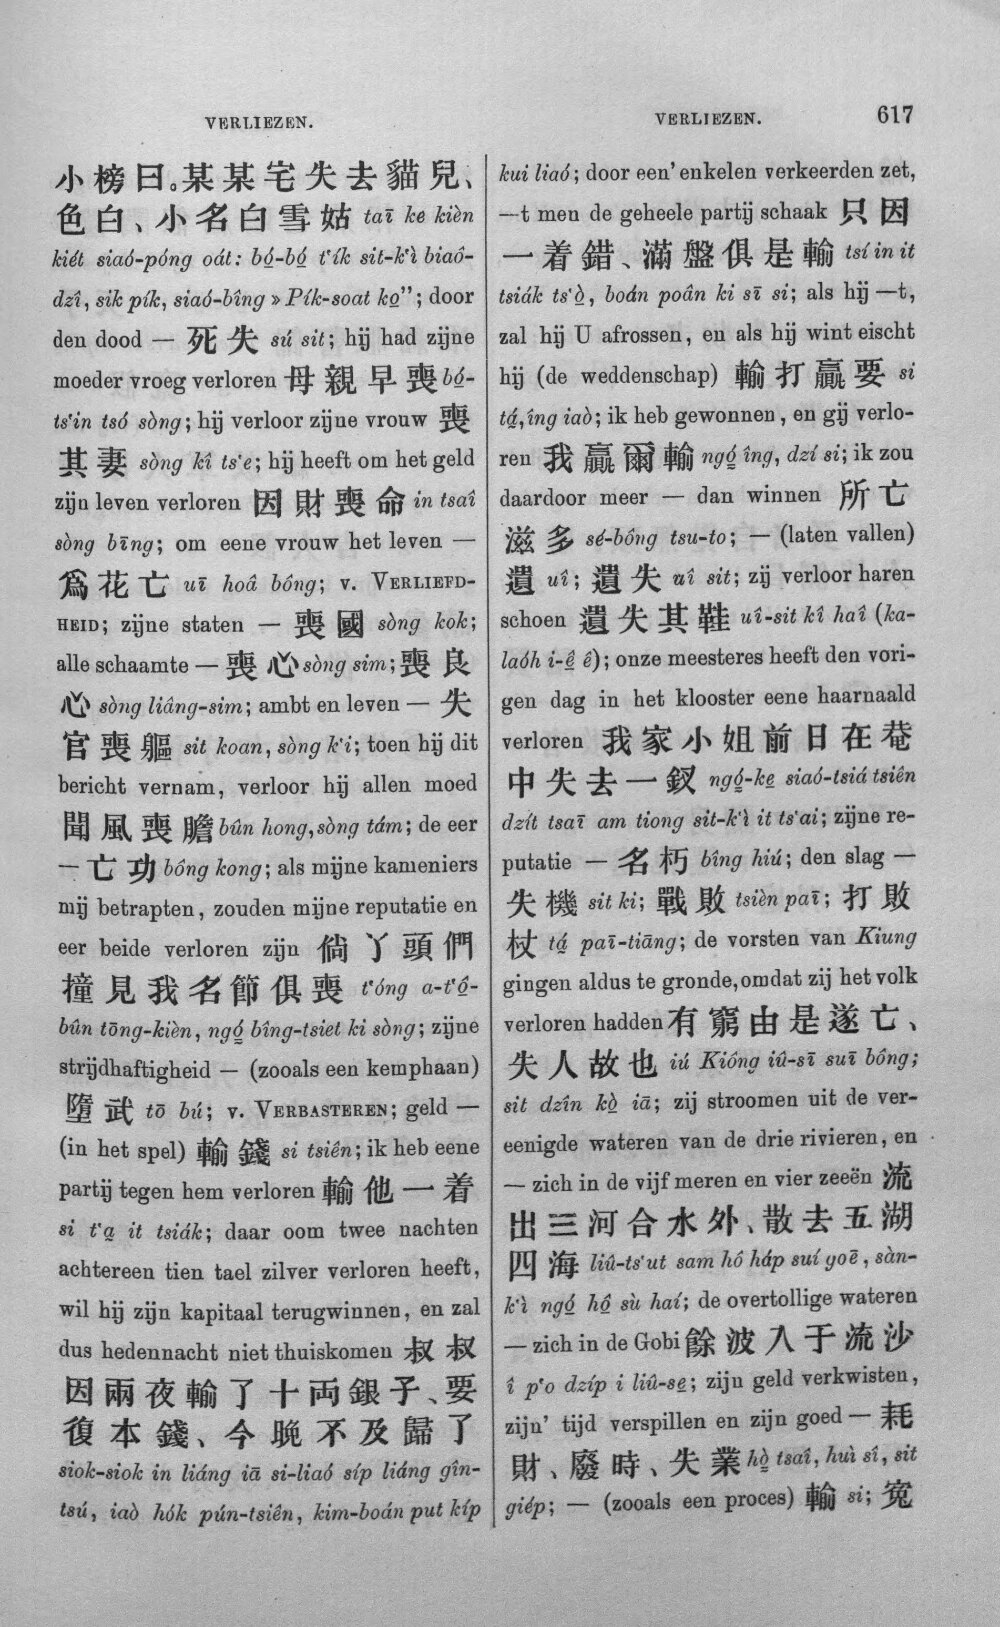 VERLIEZEN.
VERLIEZEN.
617
小榜曰。某某宅失去貓兒、
色白、小名白雪姑 taī ke kièn
kiét siaó-póng oát: bó̱-bó̱ t‘ík sit-k‘ì biaô-
dzî, sik pík, siaó-bîng » Pík-soat ko̱”; door
den dood — 死失 sú sit; hij had zijne
moeder vroeg verloren 母親早喪 bó̱-
ts‘in tsó sòng; hij verloor zijne vrouw 喪
其妻 sòng kî ts‘e; hij heeft om het geld
zijn leven verloren 因財喪命 in tsaî
sòng bīng; om eene vrouw het leven —
爲花亡 uī hoâ bông; v. VERLIEFD-
HEID; zijne staten — 喪國 sòng kok;
alle schaamte — 喪心 sòng sim; 喪良
心 sòng liâng-sim; ambt en leven — 失
官喪軀 sit koan, sòng k‘i; toen hij dit
bericht vernam, verloor hij allen moed
聞風喪膽 bûn hong, sòng tám; de eer
— 亡功 bông kong; als mijne kameniers
mij betrapten, zouden mijne reputatie en
eer beide verloren zijn 倘丫頭們
撞見我名節俱喪 t‘óng a-t‘ô̱-
bûn tōng-kièn, ngó̱ bîng-tsiet ki sòng; zijne
strijdhaftigheid — (zooals een kemphaan)
墮武 tō bú; v. VERBASTEREN; geld —
(in het spel) 輸錢 si tsiên; ik heb eene
partij tegen hem verloren 輸他一着
si t‘a̱ it tsiák; daar oom twee nachten
achtereen tien tael zilver verloren heeft,
wil hij zijn kapitaal terugwinnen, en zal
dus hedennacht niet thuiskomen 叔叔
因兩夜輸了十両銀子、要
復本錢、今晚不及歸了
siok-siok in liáng iā si-liaó síp liáng gîn-
tsú, iaò hók pún-tsiên, kim-boán put kíp
kui liaó; door een’ enkelen verkeerden zet,
—t men de geheele partij schaak 只因
一着錯、滿盤俱是輸 tsí in it
tsiák ts‘ò̱, boán poân ki sī si; als hij —t,
zal hij U afrossen, en als hij wint eischt
hij (de weddenschap) 輸打贏要 si
tá̱, îng iaò; ik heb gewonnen, en gij verlo-
ren 我贏爾輸 ngó̱ îng, dzí si; ik zou
daardoor meer — dan winnen 所亡
滋多 sé-bông tsu-to; — (laten vallen)
遺 uî; 遺失 uî sit; zij verloor haren
schoen 遺失其鞋 uî-sit kî haî (ka-
laóh i-ê̱ ê); onze meesteres heeft den vori-
gen dag in het klooster eene haarnaald
verloren 我家小姐前日在菴
中失去一釵 ngó̱-ke̱ siaó-tsiá tsiên
dzít tsaī am tiong sit-k‘ì it ts‘ai; zijne re-
putatie — 名朽 bîng hiú; den slag —
失機 sit ki; 戰敗 tsièn paī; 打敗
杖 tá̱ paī-tiāng; de vorsten van Kiung
gingen aldus te gronde, omdat zij het volk
verloren hadden 有窮由是遂亡、
失人故也 iú Kiông iû-sī suī bông;
sit dzîn kò̱ iā; zij stroomen uit de ver-
eenigde wateren van de drie rivieren, en
— zich in de vijf meren en vier zeeën 流
出三河合水外、散去五湖
四海 liû-ts‘ut sam hô háp suí yoē, sàn-
k‘ì ngó̱ hô̱ sù haí; de overtollige wateren
— zich in de Gobi 餘波入于流沙
î p‘o dzíp i liû-se̱; zijn geld verkwisten,
zijn’ tijd verspillen en zijn goed — 耗
財、廢時、失業 hò̱ tsaî, huì sî, sit
giép; — (zooals een proces) 輸 si; 冤